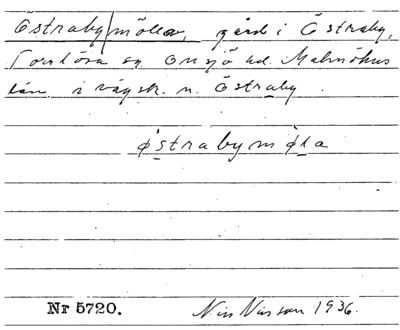 Östraby/möllan, gård i Östraby,
Torrlösa sn. Onsjö hd. Malmöhus
län i vägsk. n. Östraby.
östrabymöla
Nr 5720. Nils Nilsson 1936.